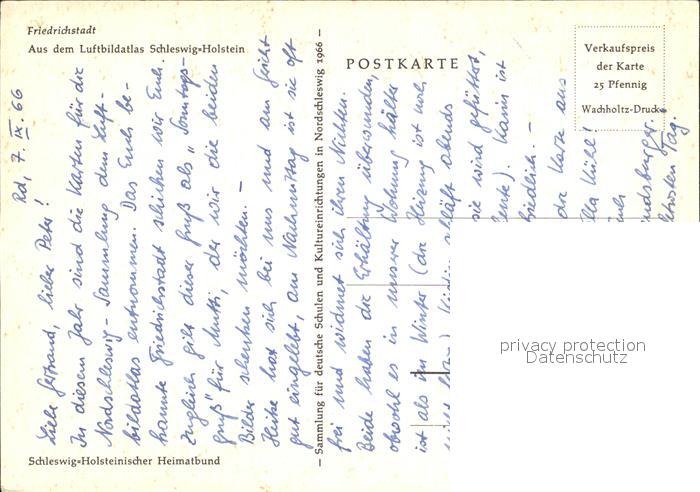 Friedrichstadt
Aus dem Luftbildatlas Schleswig=Holstein
Schleswig=Holsteinischer Heimatbund
— Sammlung für deutsche Schulen und Kultureinrichtungen in Nordschleswig 1966 —
POSTKARTE
Verkaufspreis
der Karte
25 Pfennig
Wachholtz-Druck
Rd, 7. IX. 66
Liebe Gertraud, lieber Peter!
In diesem Jahr sind die Karten für die
Nordschleswig-Sammlung dem Luft-
bildatlas entnommen. Das Euch be-
kannte Friedrichstadt schicken wir Euch.
Zugleich gilt dieser Gruß als „Sonntags-
gruß" für Mutti, der wir die beiden
Bilder schenken möchten. —
Heike hat sich bei uns und am Gericht
gut eingelebt, am Nachmittag ist sie oft
frei und widmet sich ihren Nichten.
Beide haben die Erkältung überstanden,
obwohl es in unserer Wohnung kälter
ist als im Winter (die Heizung ist noch
schläft abends
sie wird gefüttert,
ist
aus
Tag.
privacy protection
Datenschutz